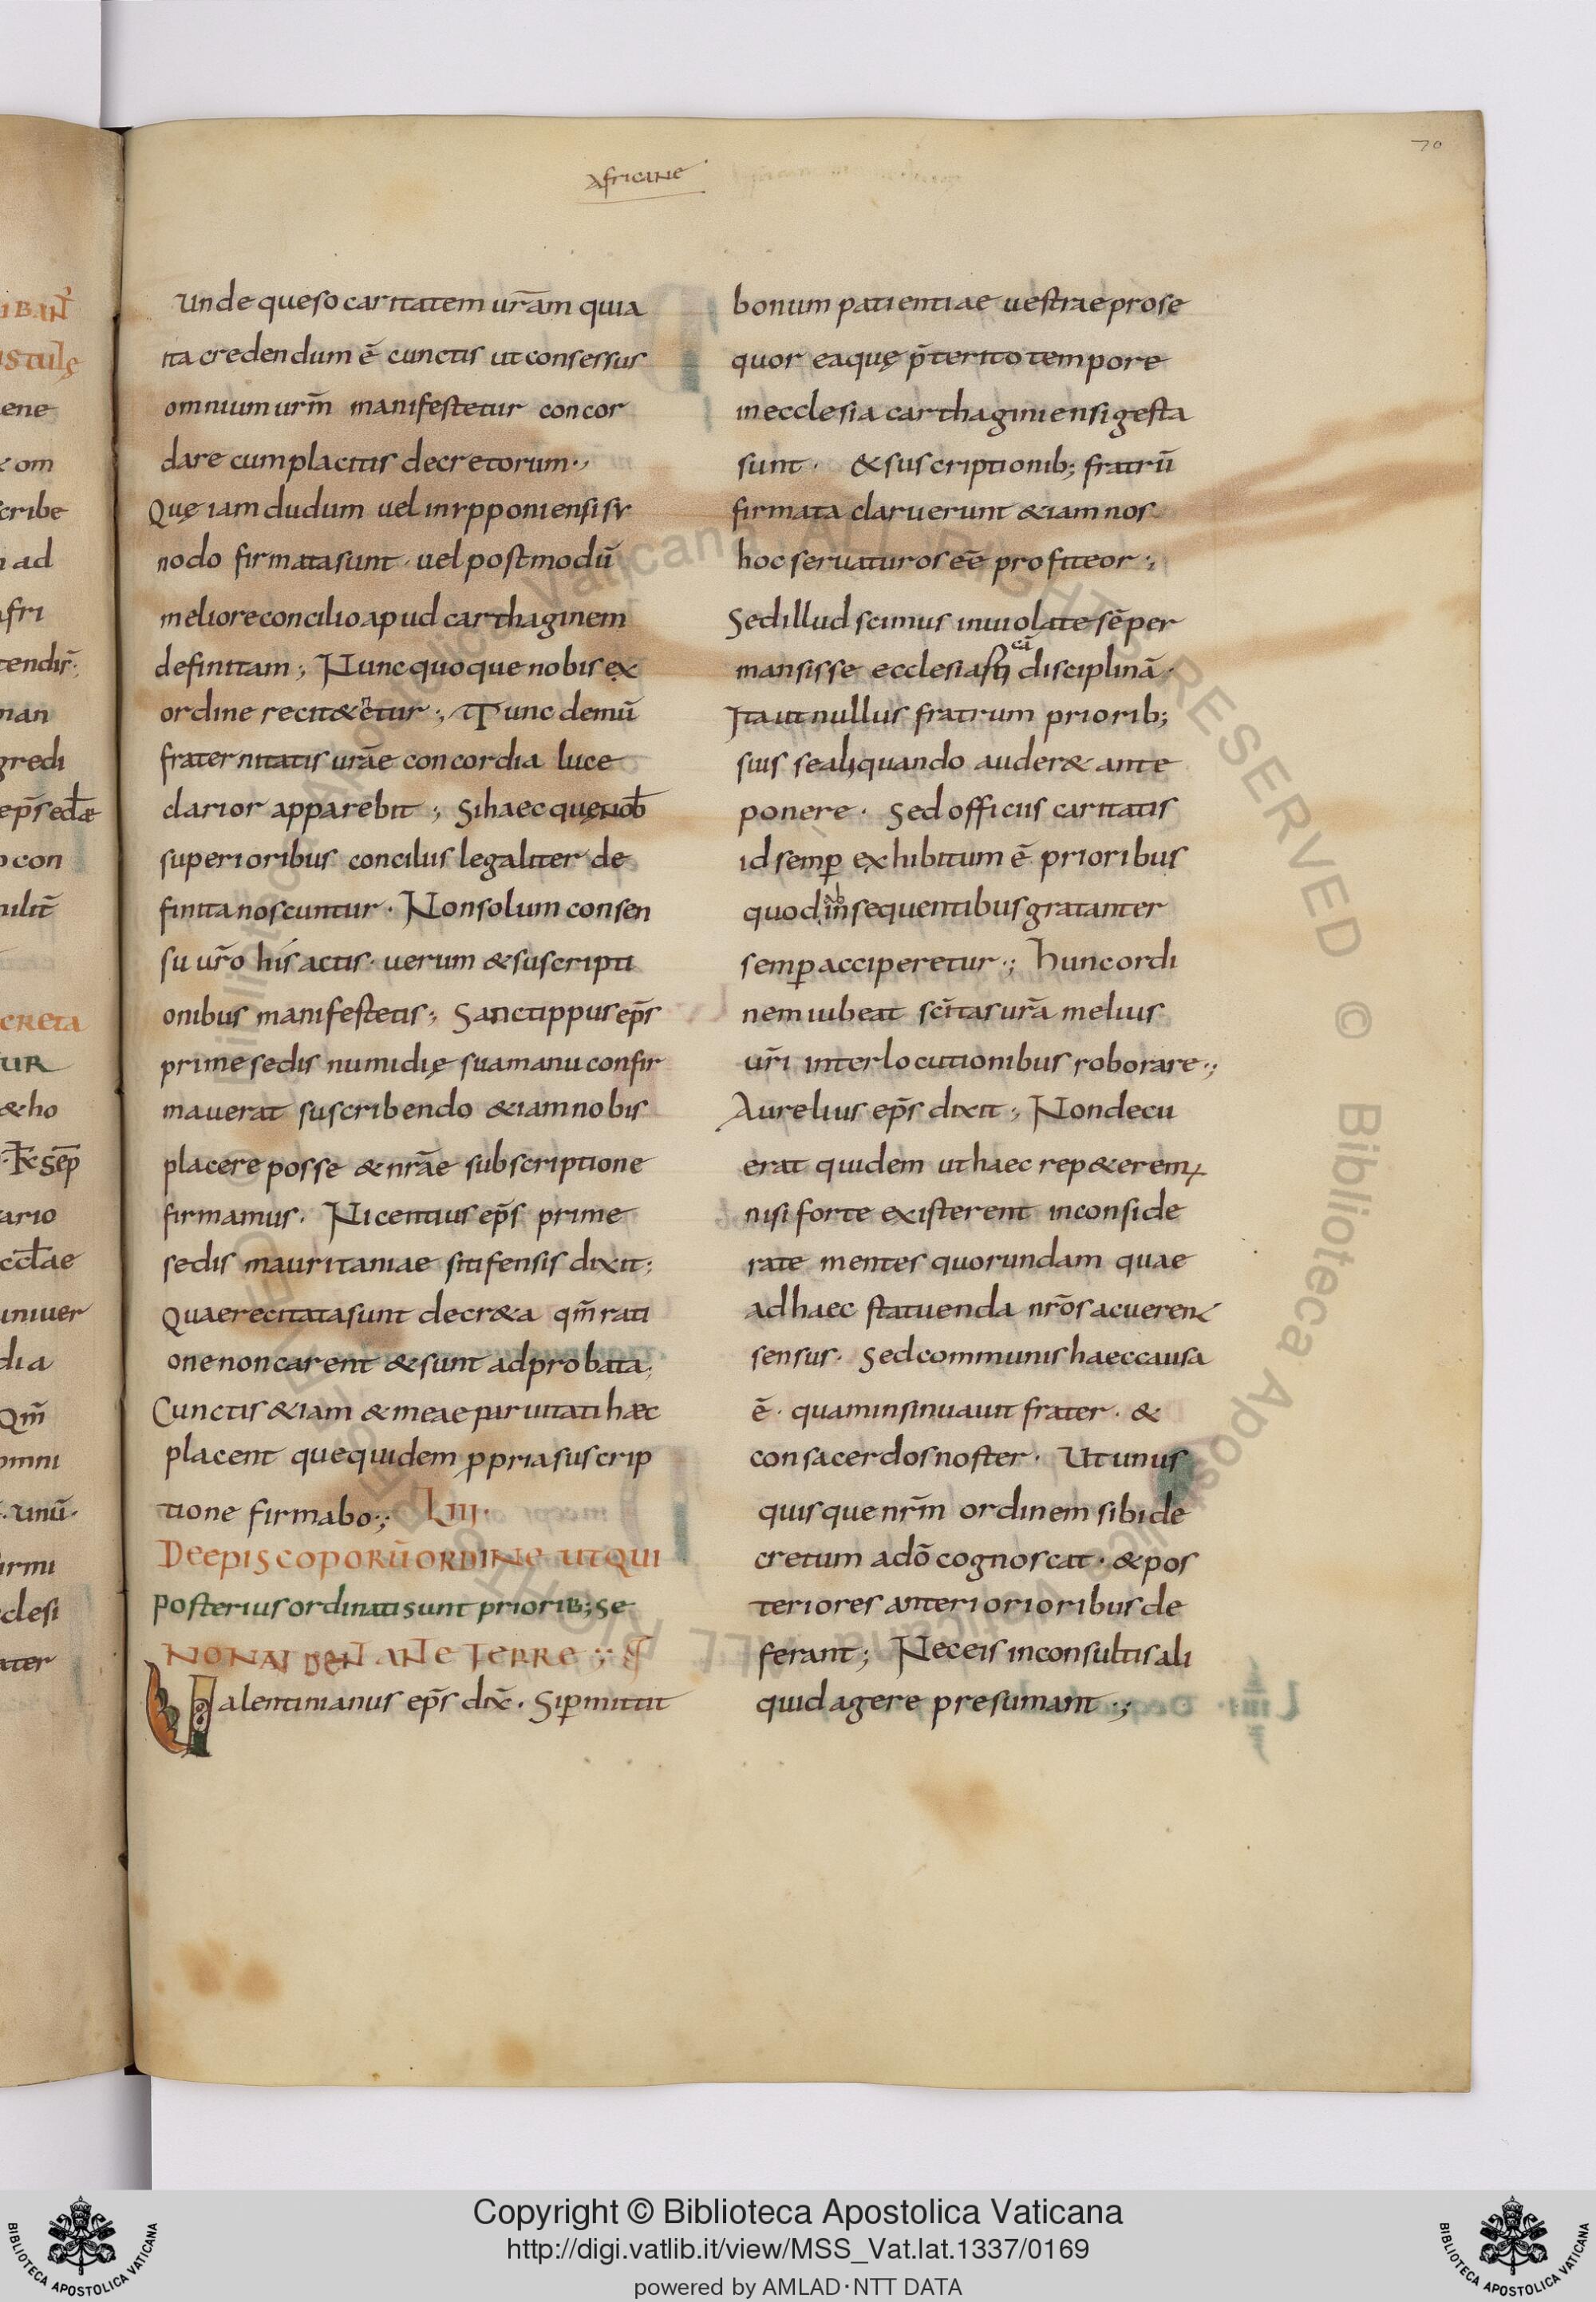 70
Africane
Unde queso caritatem ur̄am quia
ita credendum ē cunctis ut consessus
omnium urm̄ manifestetur concor
dare cum placitis decretorum·,
Quę iam dudum uel in ypponiensi sy
nodo firmata sunt · uel postmodū
meliore concilio apud carthaginem
definitam ; Nunc quoque nobis ex
ordine recit&etur ·, Tunc demū
fraternitatis urāe concordia luce
clarior apparebit ; Si haec quę
superioribus conciliis legaliter de
finita noscuntur · Non solum consen
su ur̄o his actis · uerum & suscripti
onibus manifestetis ; Sanctippus ep̄s
prime sedis numidię sua manu confir
mauerat suscribendo &iam nobis
placere posse & nrāe subscriptione
firmamus · Nicentius ep̄s prime
sedis mauritaniae sitifensis dixit ;
Quae recitata sunt decr&a qm̄ rati
one non carent & sunt adprobata ·
Cunctis &iam & meae paruitati haec
placent que quidem ꝓpria suscrip
tione firmabo ·; LIII·
De episcoporū ordine ut qui
posterius ordinati sunt priorib; se
non audeant anteferre
Ualentinianus ep̄s dix̄ · Si ꝑmittit
bonum patientiae uestrae prose
quor ea quę p̄terito tempore
in ecclesia carthaginiensi gesta
sunt · & suscriptionib; fratrū
firmata claruerunt &iam nos
hoc seruaturos eē profiteor ·,
Sed illud scimus inuiolate sēper
mansisse disciplinā ·
Ita ut nullus fratrum priorib;
suis se aliquando auder& ante
ponere · Sed officiis caritatis
id semꝑ exhibitum ē prioribus
quod sequentibus gratanter
semꝑ acciperetur ·; Hunc ordi
nem iubeat sc̄itas ur̄a melius
ur̄i interlocutionibus roborare ·;
Aurelius ep̄s dixit ; Non decu
erat quidem ut haec rep&erem,
nisi forte existerent inconside
rate mentes quorundam quae
ad haec statuenda nrōs acueren
sensus · Sed communis haec causa
ē · quam insinuauit frater · &
consacerdos noster · Ut unus
quisque nrm̄ ordinem sibi de
cretum adō cognoscat · & pos
teriores anterioribus de
ferant ; Nec eis inconsultis ali
quid agere presumant ·;
Copyright © Biblioteca Apostolica Vaticana
http://digi.vatlib.it/view/MSS_Vat.lat.1337/0169
powered by AMLAD·NTT DATA
BIBLIOTECA APOSTOLICA VATICANA
BIBLIOTECA APOSTOLICA VATICANA